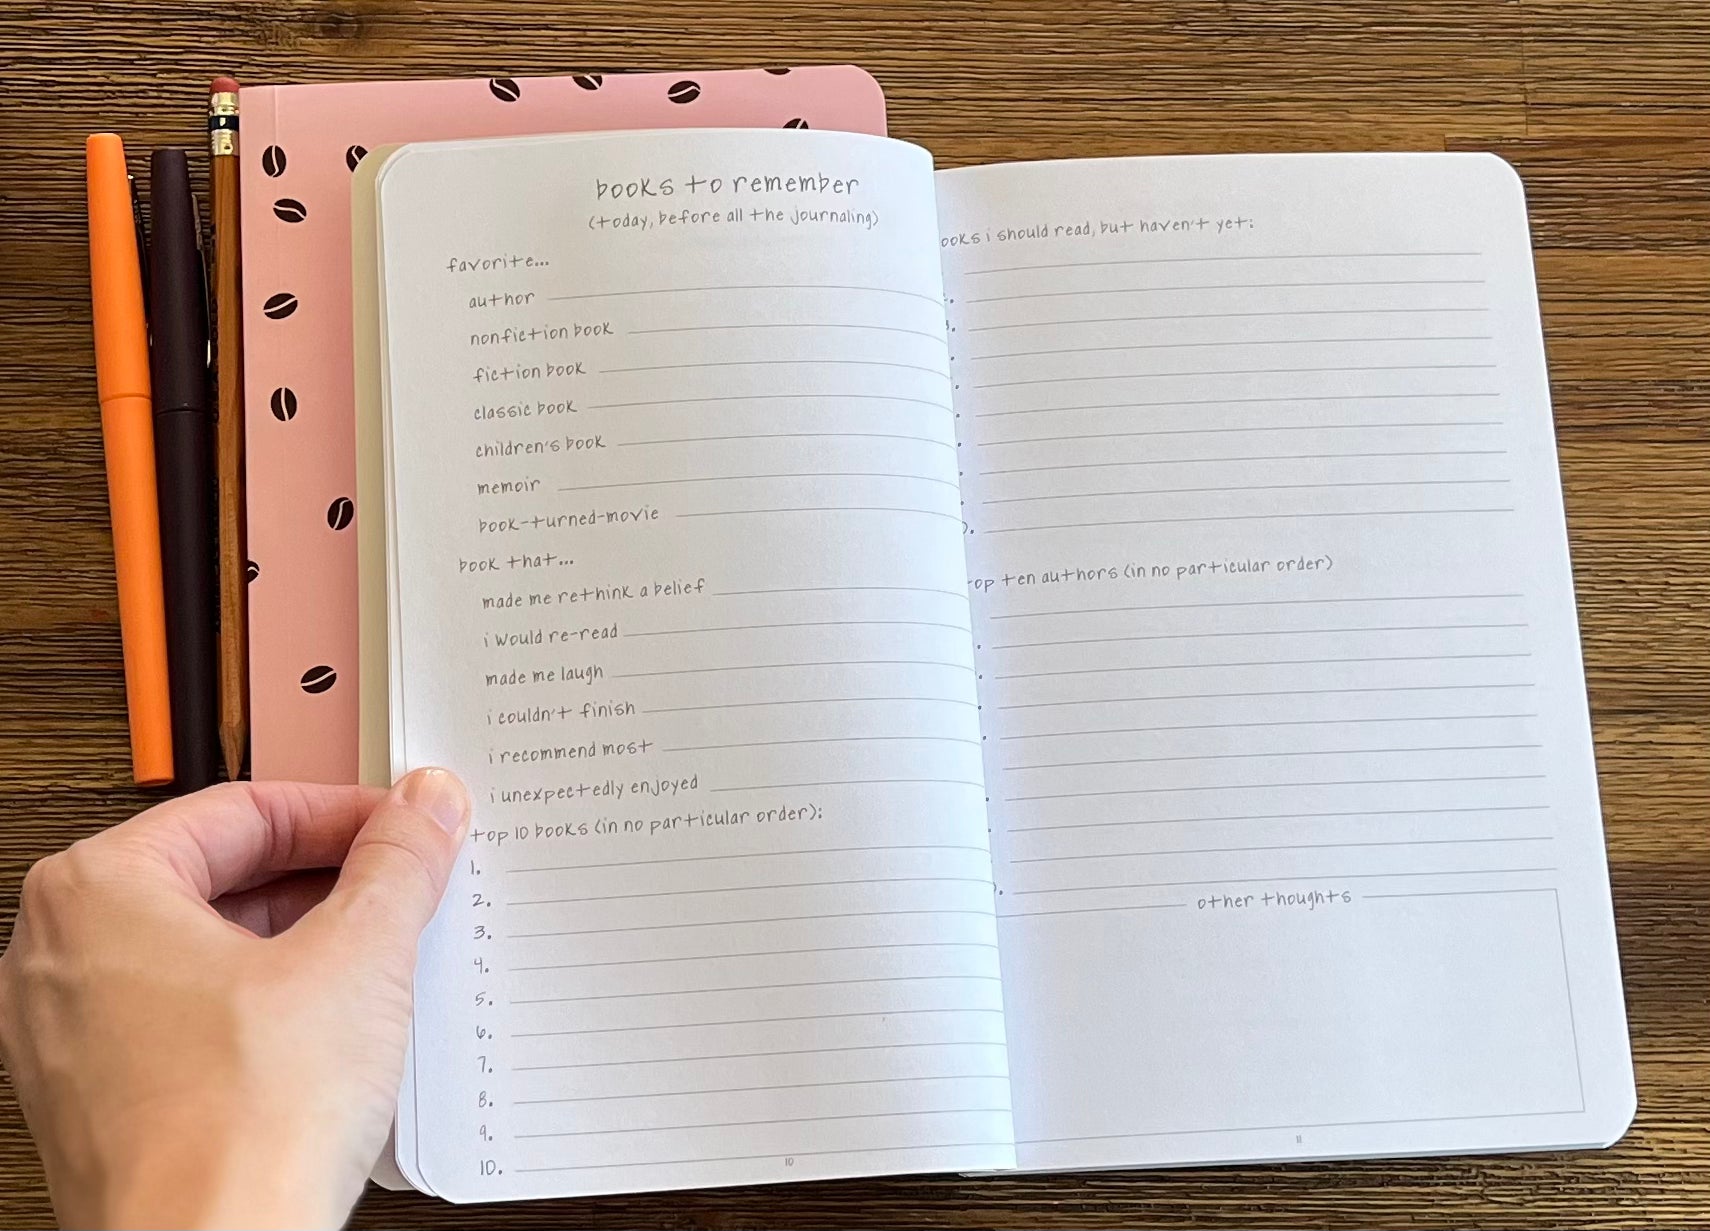 books to remember
(today, before all the journaling)
favorite...
author
nonfiction book
fiction book
classic book
children's book
memoir
book-turned-movie
book that...
made me rethink a belief
i would re-read
made me laugh
i couldn't finish
i recommend most
i unexpectedly enjoyed
top 10 books (in no particular order):
1.
2.
3.
4.
5.
6.
7.
8.
9.
10.
10
ooks i should read, but haven't yet:
op ten authors (in no particular order)
other thoughts
11